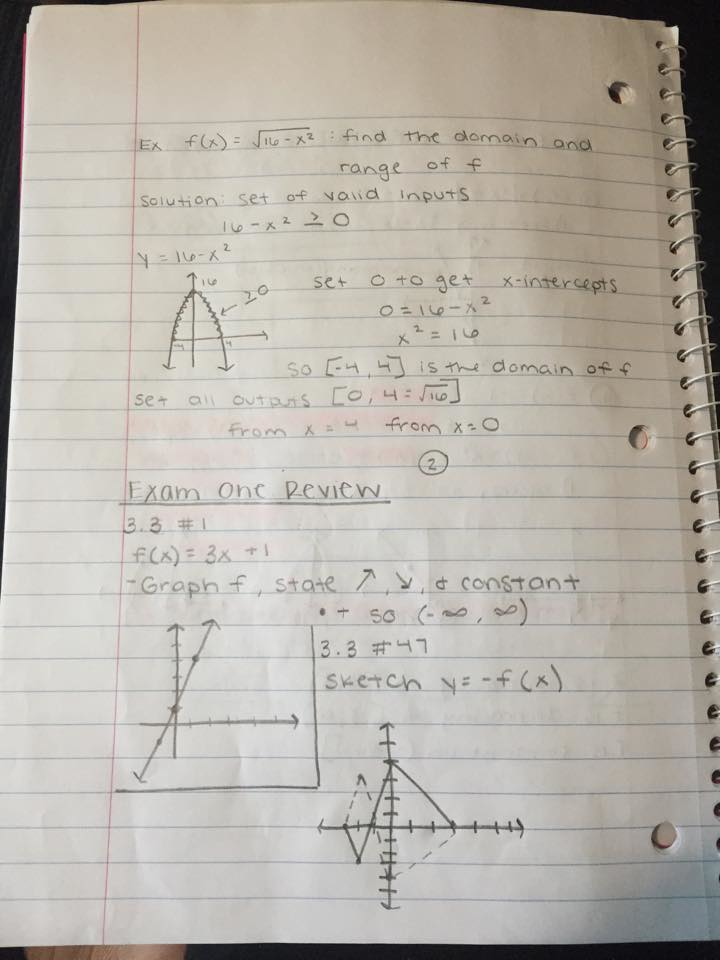 Ex f(x) = √16-x² : find the domain and
range of f
Solution: set of valid inputs
16-x² ≥ 0
y = 16-x²
16
≥0
-4 4
set 0 to get x-intercepts
0 = 16-x²
x² = 16
so [-4, 4] is the domain of f
set all outputs [0, 4=√16]
from x = 4 from x=0
2
Exam One Review
3.3 #1
f(x) = 3x +1
- Graph f, state ↗, ↘, & constant
• + so (-∞, ∞)
3.3 #47
sketch y = -f(x)